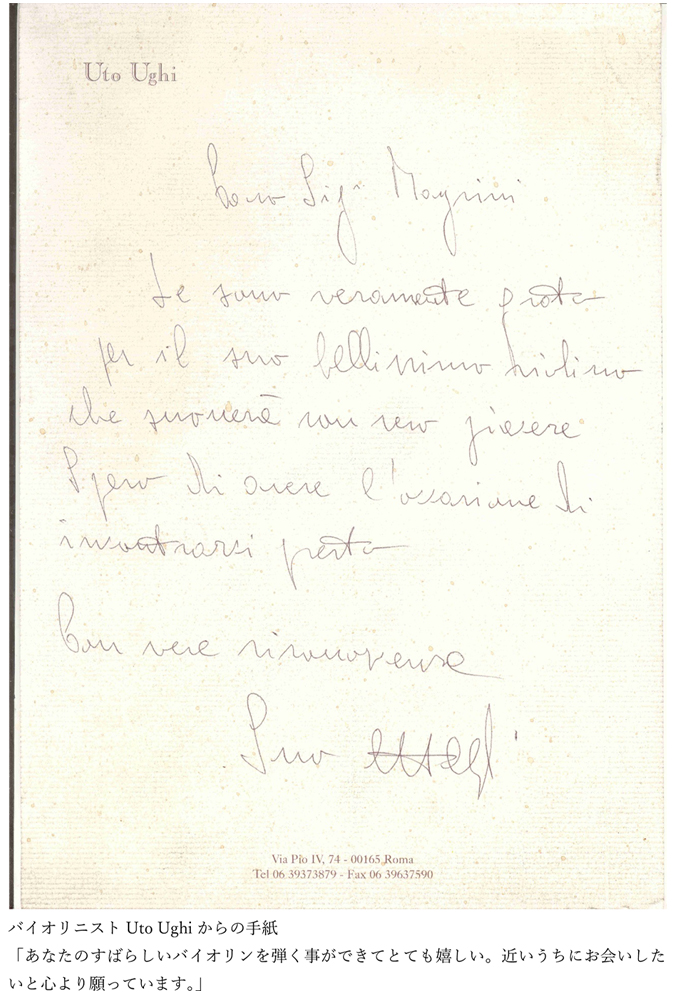 Uto Ughi
Caro Sig. Magrini
Le sono veramente grato
per il suo bellissimo violino
che suonerò con vero piacere
Spero di avere l'occasione di
incontrarci presto
Con vera riconoscenza
Suo Uto Ughi
Via Pio IV, 74 - 00165 Roma
Tel 06 39373879 - Fax 06 39637590
バイオリニスト Uto Ughi からの手紙
「あなたのすばらしいバイオリンを弾く事ができてとても嬉しい。近いうちにお会いした
いと心より願っています。」